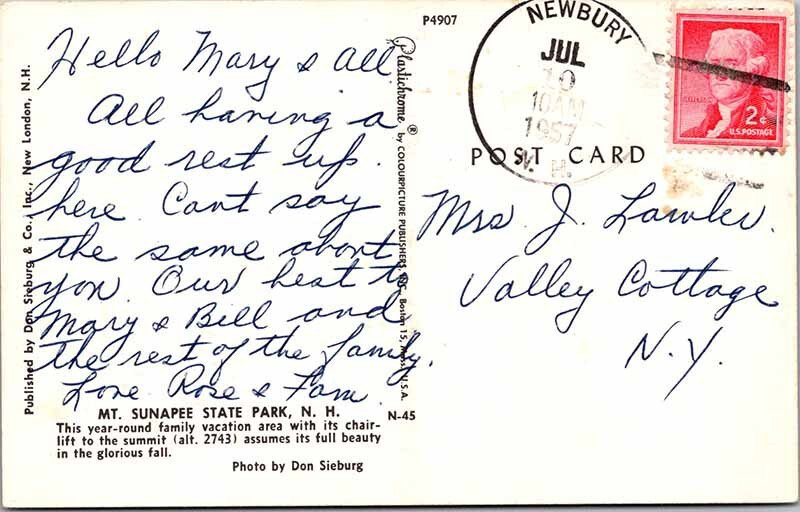 Hello Mary & all.
All having a
good rest up
here. Cant say
the same about
you. Our best to
Mary & Bill and
the rest of the family.
Love Rose & Fam.
MT. SUNAPEE STATE PARK, N. H.
This year-round family vacation area with its chair-
lift to the summit (alt. 2743) assumes its full beauty
in the glorious fall.
Photo by Don Sieburg
Published by Don Sieburg & Co., Inc., New London, N.H.
P4907
Plastichrome ® by COLOURPICTURE PUBLISHERS, INC., Boston 15, Mass., U.S.A.
N-45
NEWBURY
JUL
10
10AM
1957
N. H.
2¢
U.S. POSTAGE
POST CARD
Mrs J. Lawler.
Valley Cottage
N.Y.